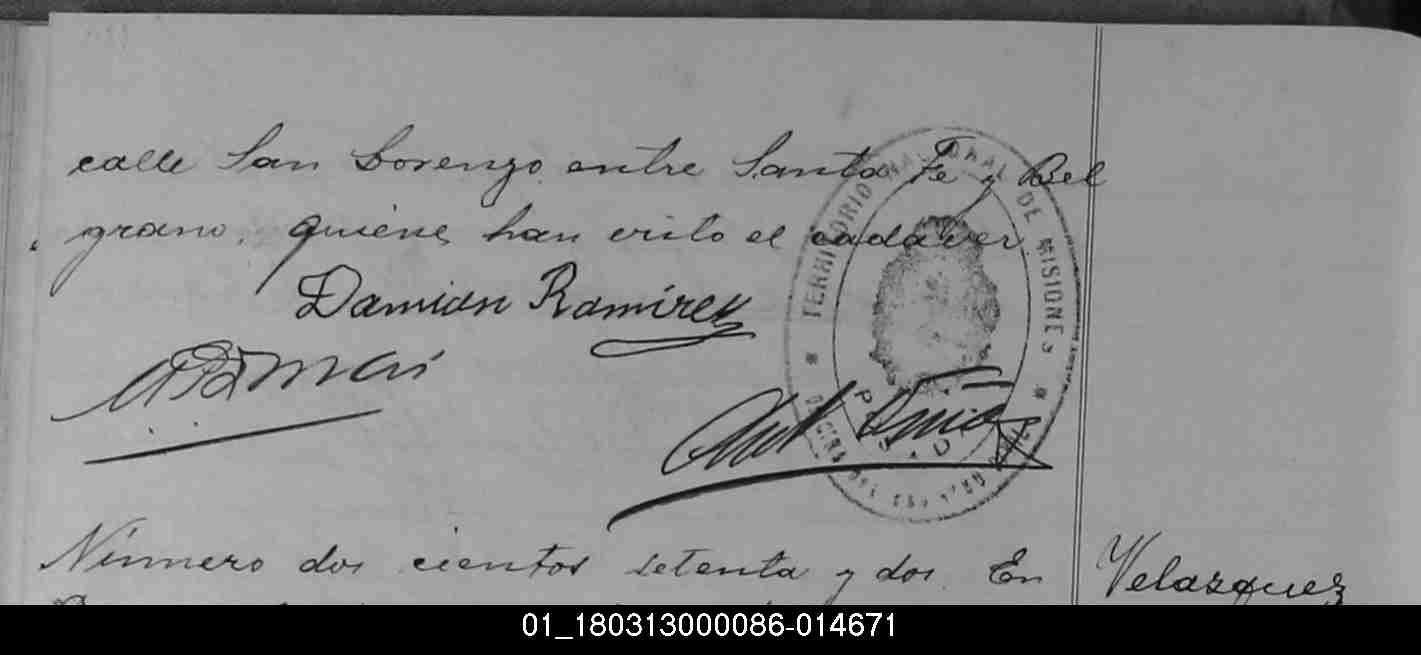 calle San Lorenzo entre Santa Fe y Bel
grano, quienes han visto el cadáver
Damian Ramirez
TERRITORIO NACIONAL DE MISIONES
Número dos cientos setenta y dos. En
Velazquez
01_180313000086-014671